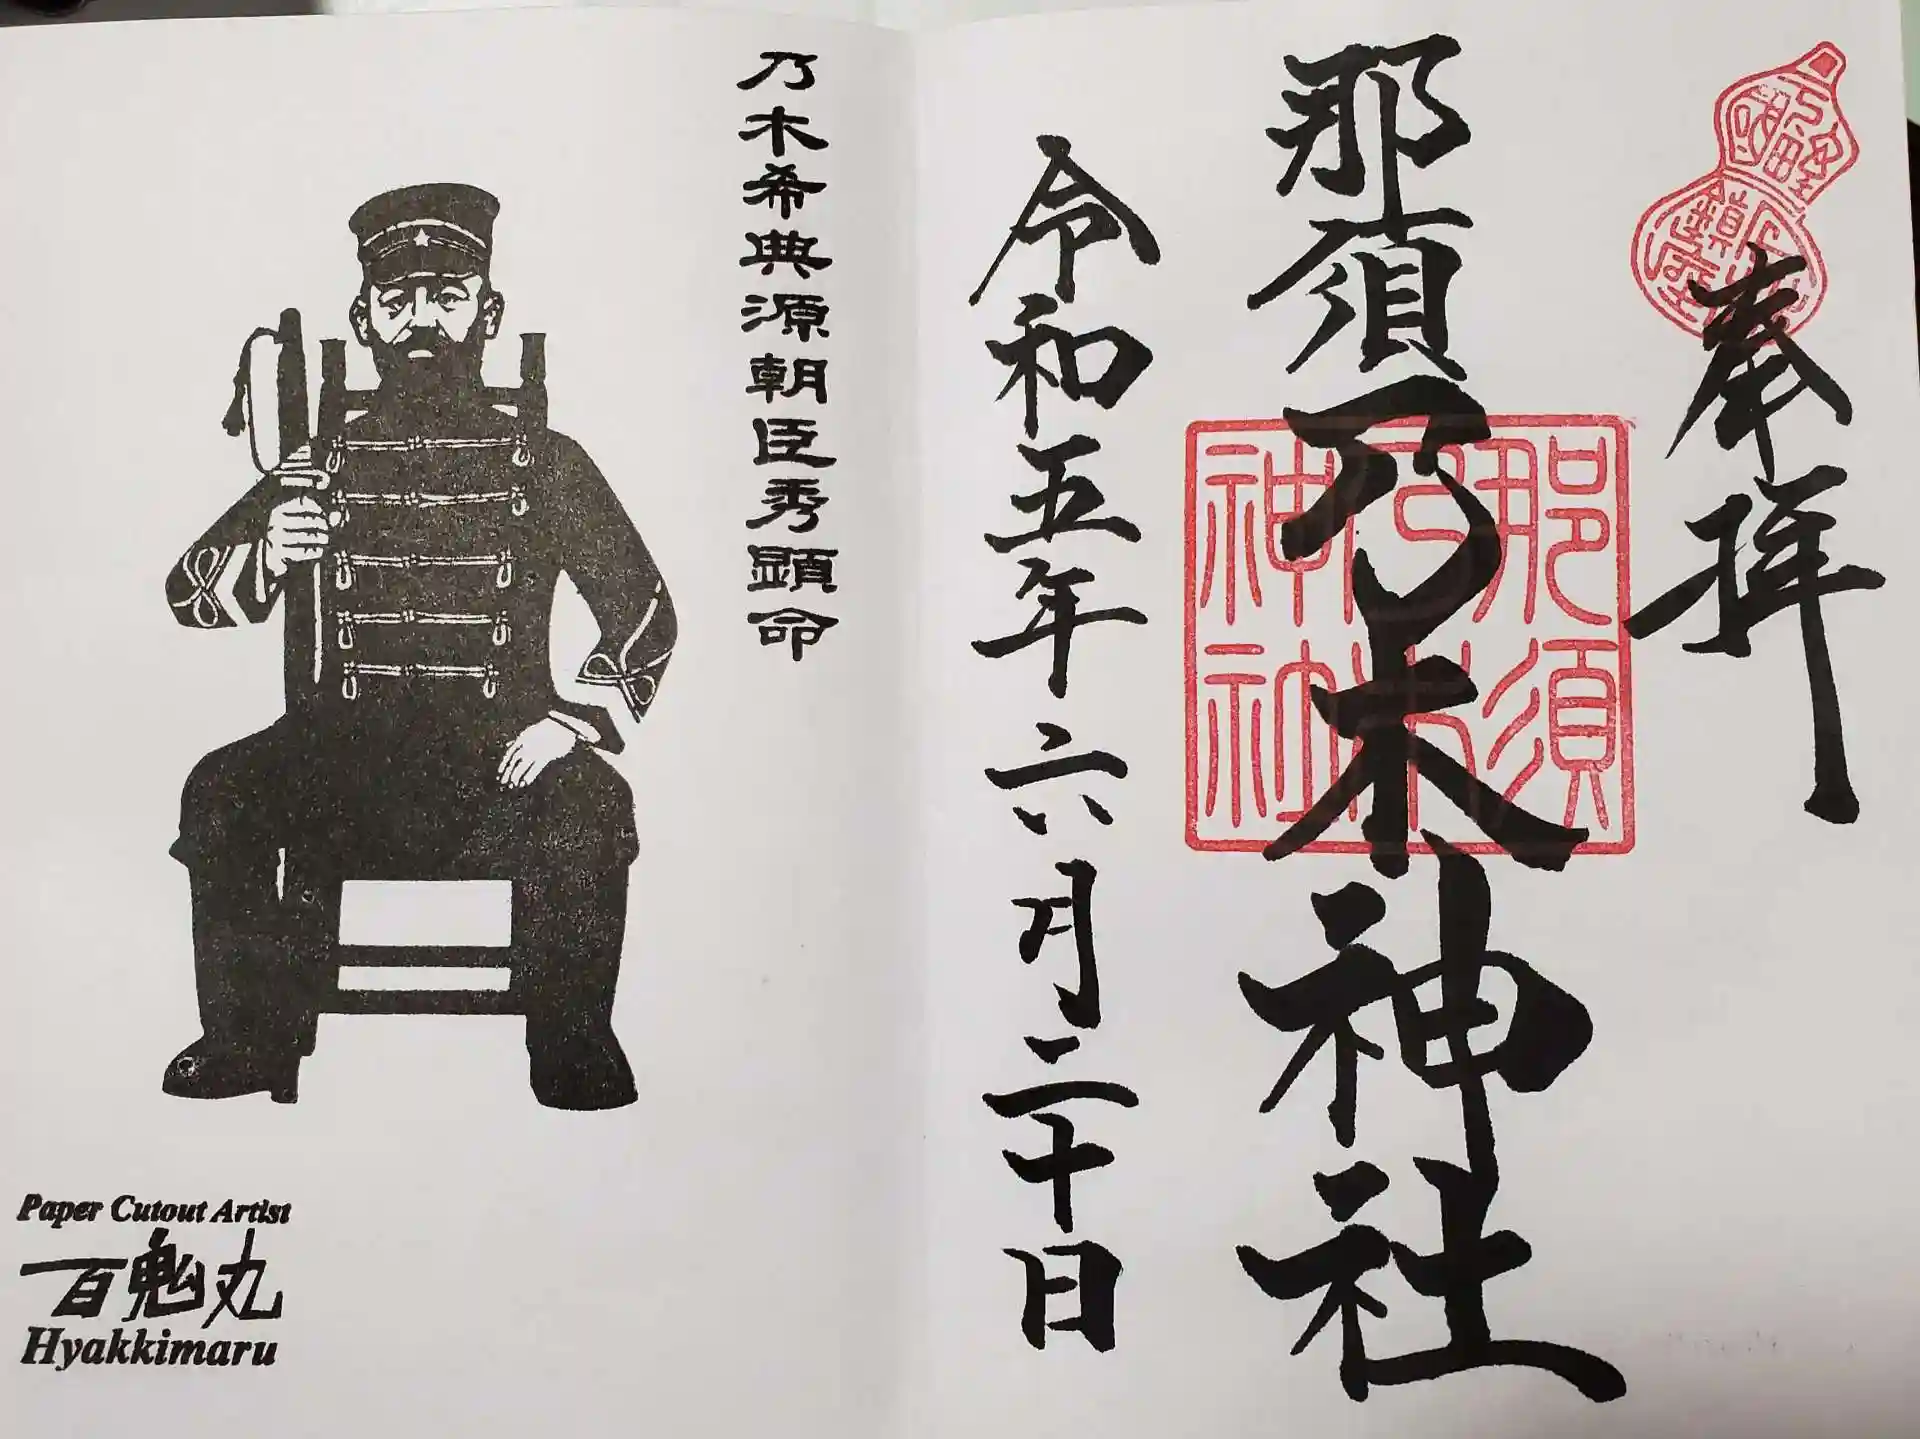 奉拝
那須乃木神社
那須
乃木
神社
令和五年六月二十日
乃木希典源朝臣秀顕命
Paper Cutout Artist
百鬼丸
Hyakkimaru